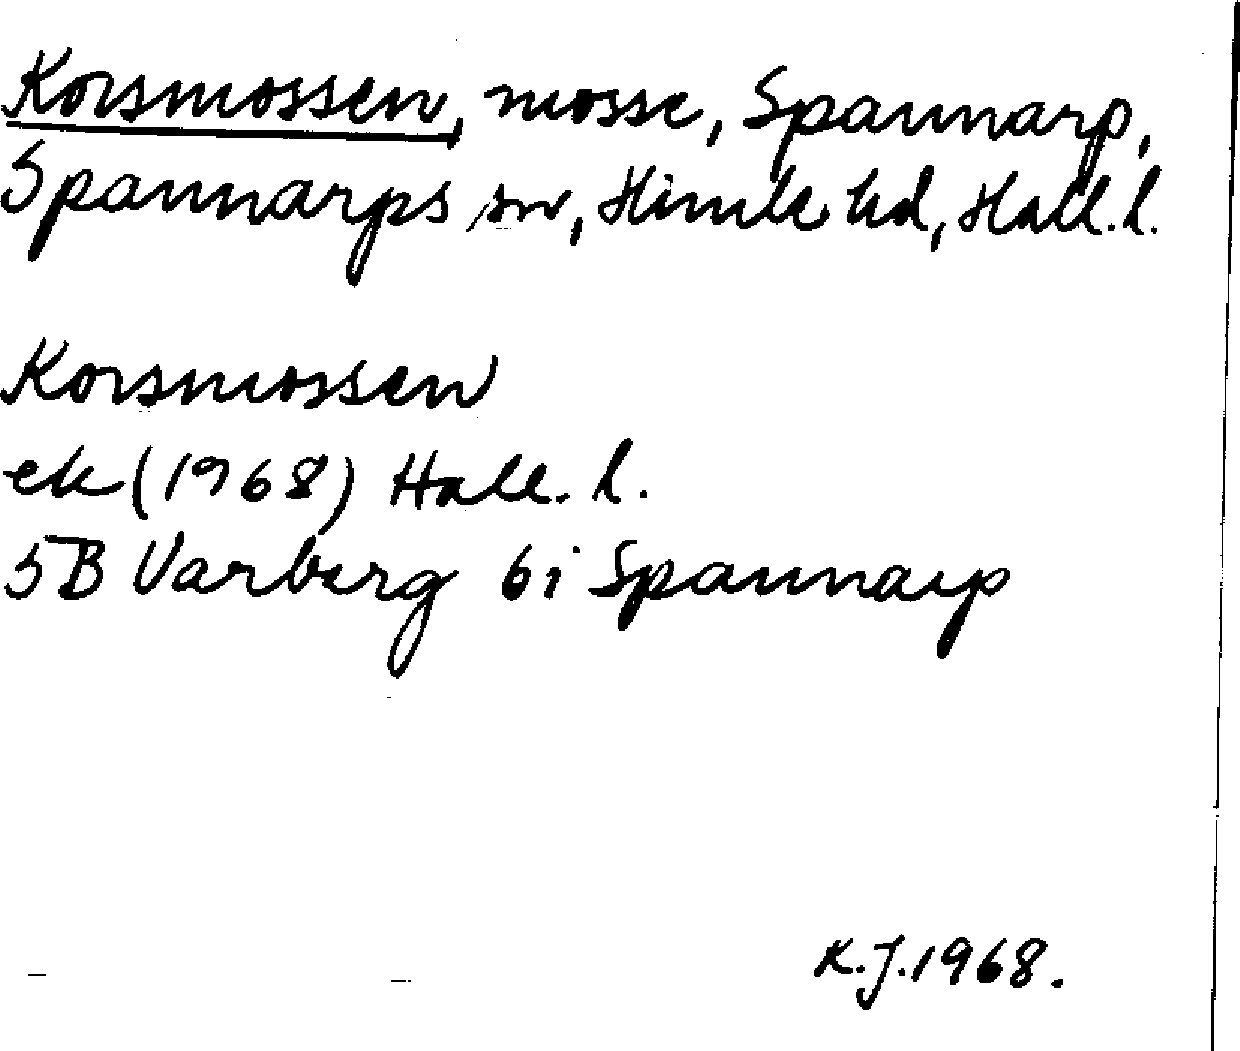 Korsmossen, mosse, Spannarp,
Spannarps sn, Himle hd, Hall. l.
Korsmossen
ek (1968) Hall. l.
5B Varberg 6i Spannarp
K.J. 1968.